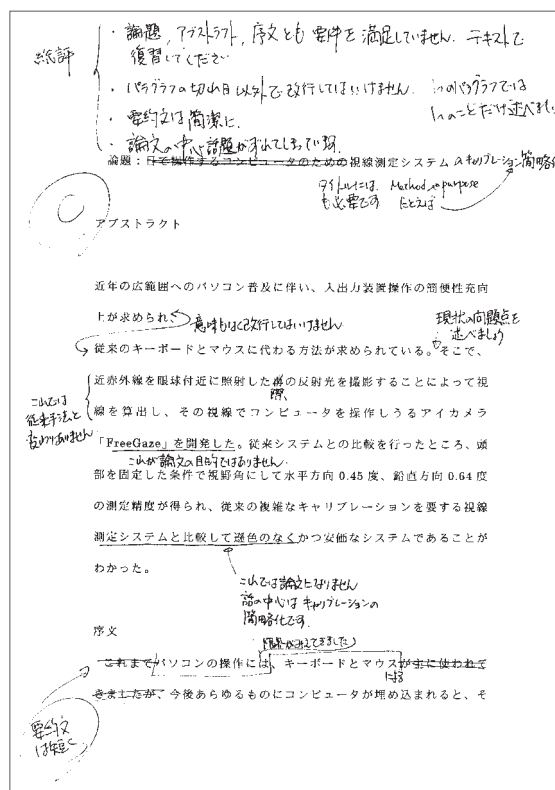 総評
・論題, アブストラクト, 序文とも 要件を 満足していません. テキストで
復習してください
・パラグラフの切れ目以外で改行してはいけません. 1つのパラグラフでは
1つのことだけ述べま
・要約文は簡潔に.
・論文の中心話題がずれてしまっている.
論題：目で操作するコンピュータのための視線測定システム のキャリブレーション簡略化
タイトルには, Method や purpose
も必要です たとえば
アブストラクト
近年の広範囲へのパソコン普及に伴い、入出力装置操作の簡便性充向
上が求められ
意味もなく改行してはいけません
現状の問題点を
述べましょう
従来のキーボードとマウスに代わる方法が求められている。そこで、
近赤外線を眼球付近に照射した の反射光を撮影することによって視
際、
線を算出し、その視線でコンピュータを操作しうるアイカメラ
これでは
従来手法と
変わりありません
「FreeGaze」を開発した。従来システムとの比較を行ったところ、頭
これが論文の目的ではありません.
部を固定した条件で視野角にして水平方向 0.45 度、鉛直方向 0.64 度
の測定精度が得られ、従来の複雑なキャリブレーションを要する視線
測定システムと比較して遜色のなくかつ安価なシステムであることが
わかった。
これでは論文になりません
話の中心はキャリブレーションの
簡略化です.
序文
限界がみえてきました
これまでパソコンの操作には、キーボードとマウスが主に使われて
による
きましたが、今後あらゆるものにコンピュータが埋め込まれると、そ
要約文
は短く